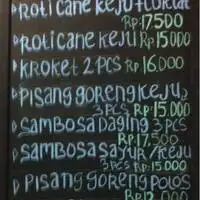 ROTI CANE KEJU+COKLAT
Rp:17500
ROTI CANE KEJU Rp 15000
KROKET 2 PCS Rp 16.000
PISANG GORENG KEJU
3 PCS Rp:15.000
SAMBOSA DAGING 3 PCS
Rp:17,500
SAMBOSA SAYUR/KEJU
3 PCS Rp:15000
PISANG GORENG POLOS
Rp 12.000